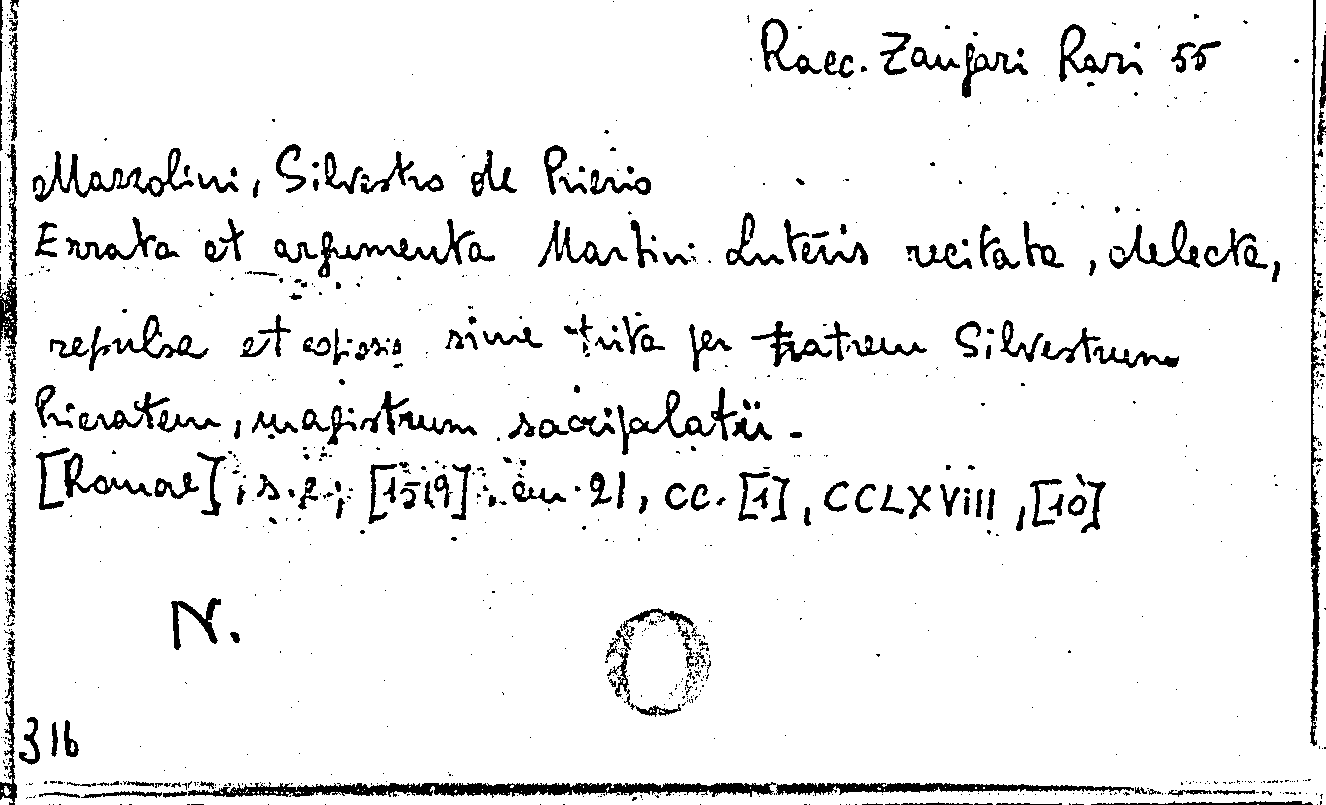 Racc. Zanjari Rari 55
Mazzolini, Silvestro de Prierio
Errata et argumenta Martini Luteris recitata, delecta,
repulsa et copiosissime trita per fratrem Silvestrum
Prieratem, magistrum sacri palatii.
[Romae], s.e., [1519], cm. 21, cc. [1], CCLXVIII, [10]
N.
316